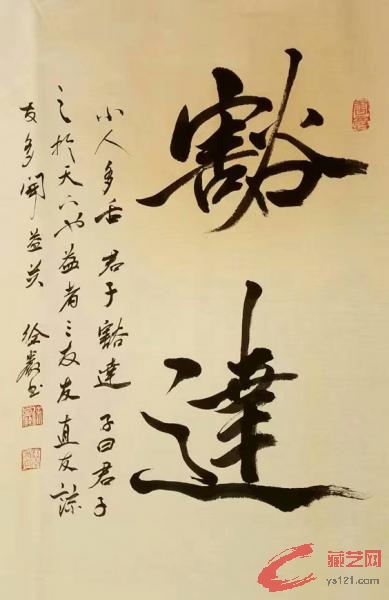 豁達
小人多舌 君子豁達 子曰君子
之於天下也益者三友友直友諒
友多聞益矣 徐嚴书
藏艺网
ys121.com